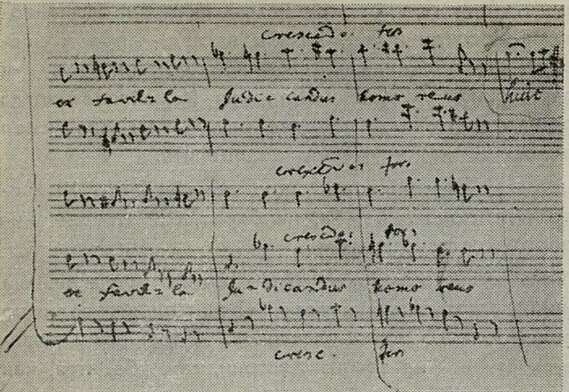 crescdo: for
ex favilla Judicandus homo reus huic
crescdo: for
crescdo: for
ex favilla Judicandus homo reus
cresc. for